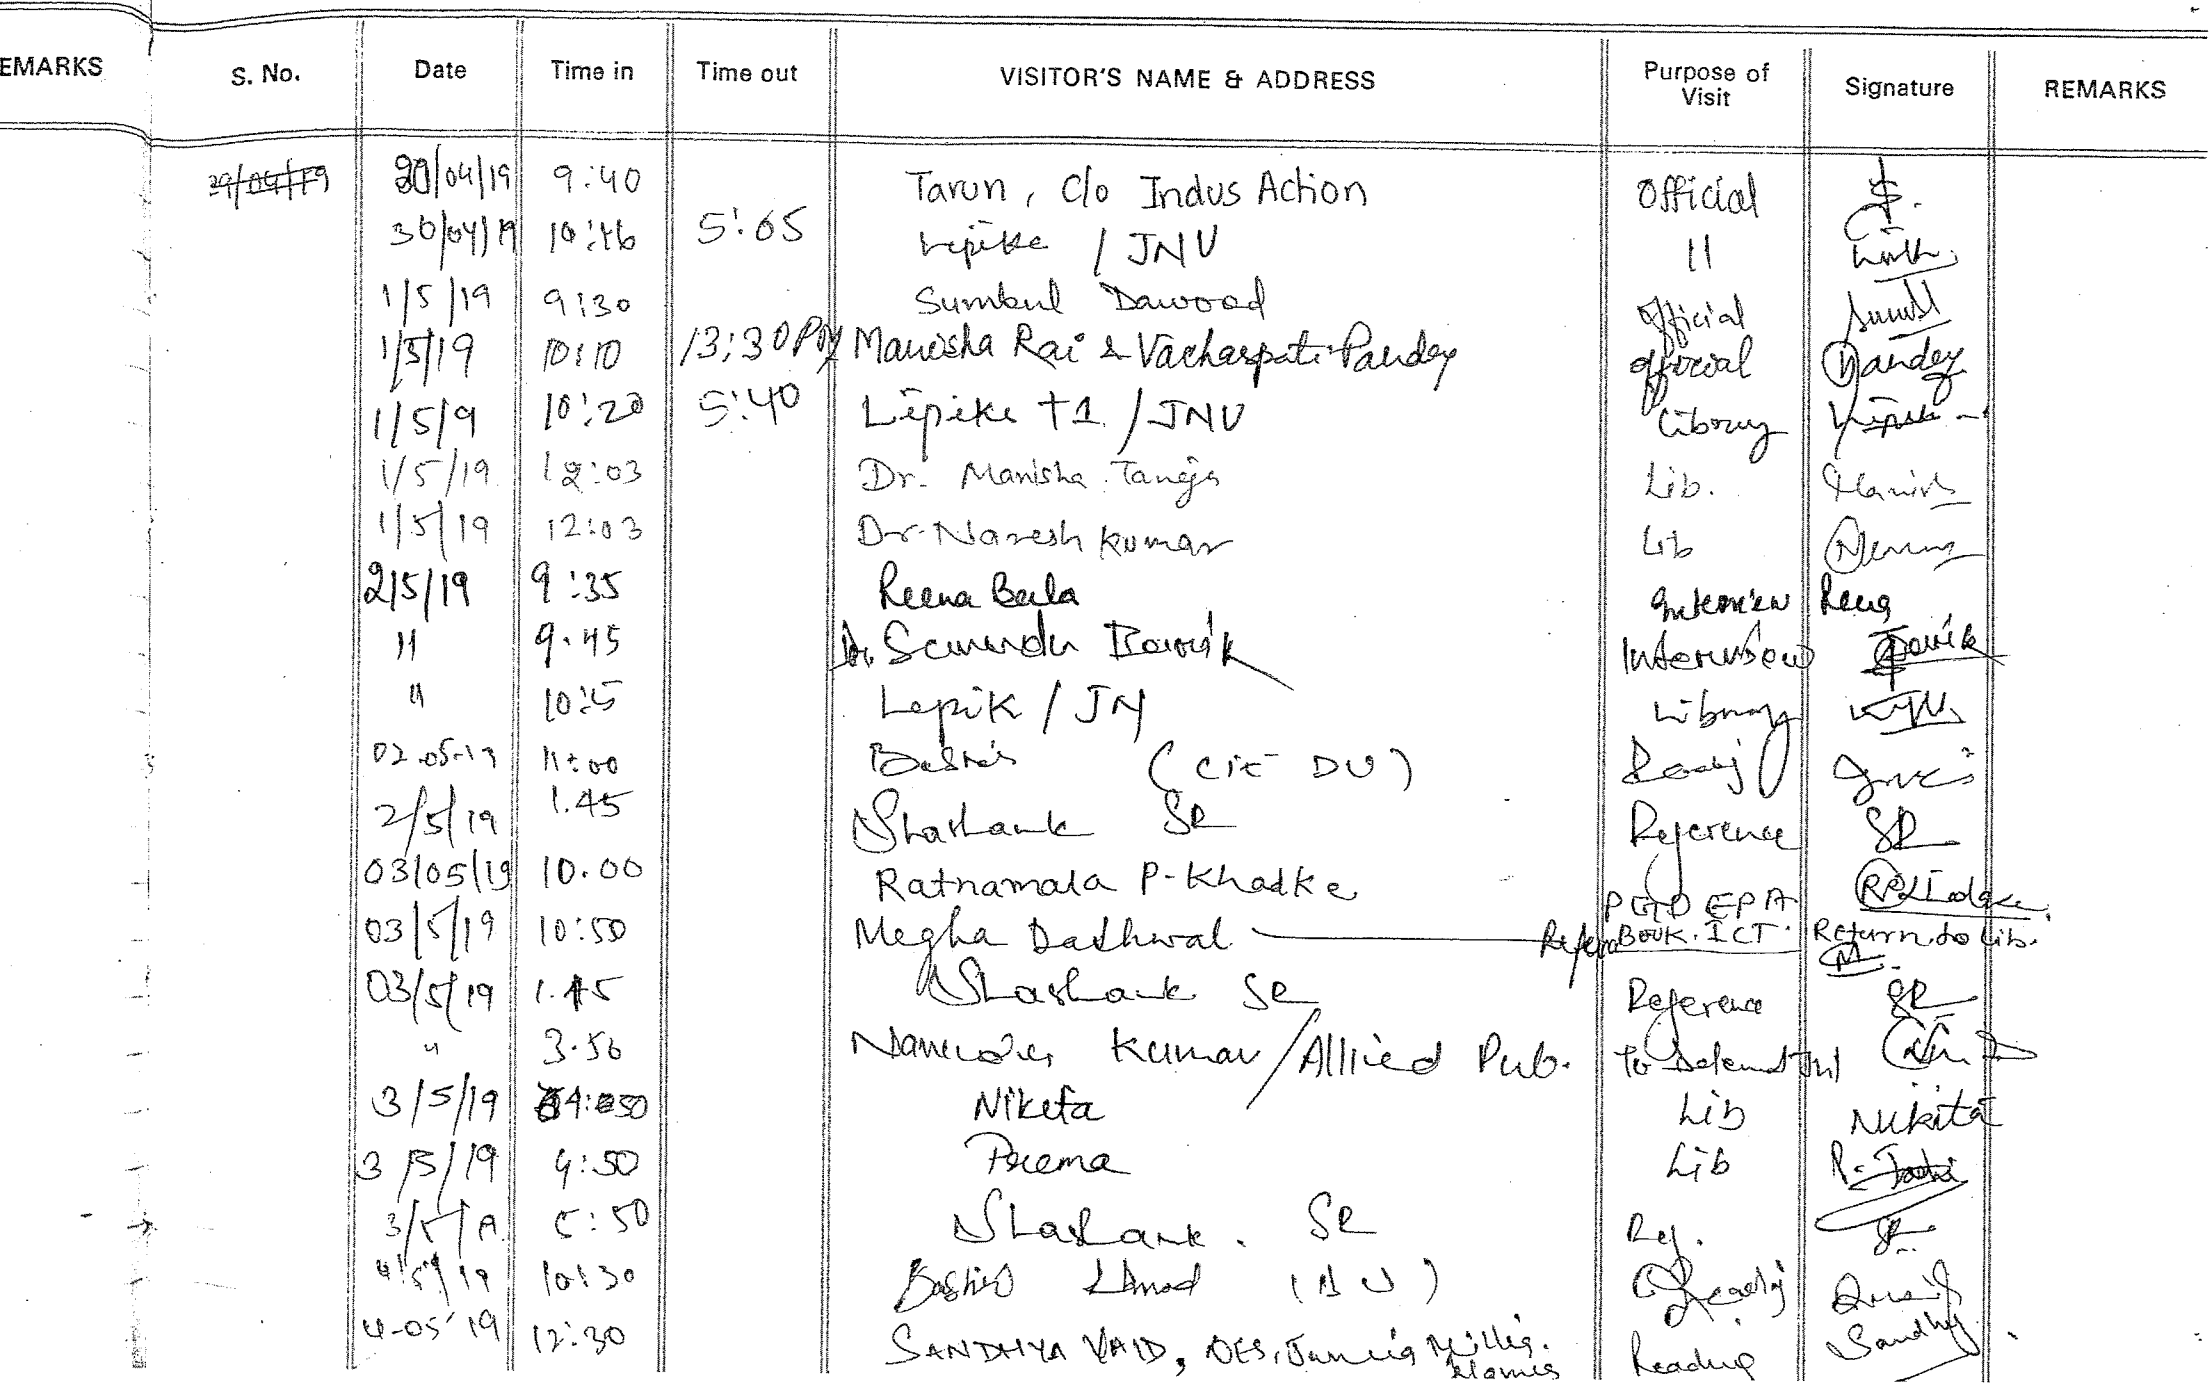 EMARKS S. No. Date Time in Time out VISITOR'S NAME & ADDRESS Purpose of Visit Signature REMARKS
29/04/19 30/04/19 9:40 Tarun, C/o Indus Action Official
30/04/19 10:46 5:05 Lipika / JNU 11
1/5/19 9:30 Sumbul Dawood Official
1/5/19 10:10 13:30 PM Manisha Rai & Vachaspati Pandey official Pandey
1/5/9 10:20 5:40 Lipika +1 / JNU Library
1/5/19 12:03 Dr. Manisha Taneja Lib.
1/5/19 12:03 Dr. Naresh Kumar Lib
2/5/19 9:35 Reena Bala Interview Reena
11 9.45 Dr. Interview
11 Lipik / JN Library
02.05.19 11:00 (CIE DU)
2/5/19 1.45 Shashank SR Reference SR
03/05/19 10.00 Ratnamala P. Khadke PGDEPA
03/5/19 10:50 Megha Dadhwal Book. ICT. Return to lib.
03/5/19 1.45 Shashank SR Reference SR
" 3.50 Kumar / Allied Pub. To
3/5/19 4:50 Nikita Lib Nikita
3/5/19 4:50 Prema Lib
5:50 Shashank. SR Ref. SR
4/5/19 10:30 Reading
4-05-19 12:30 SANDHYA VAID, Jamia Millia Islamia Reading Sandhya